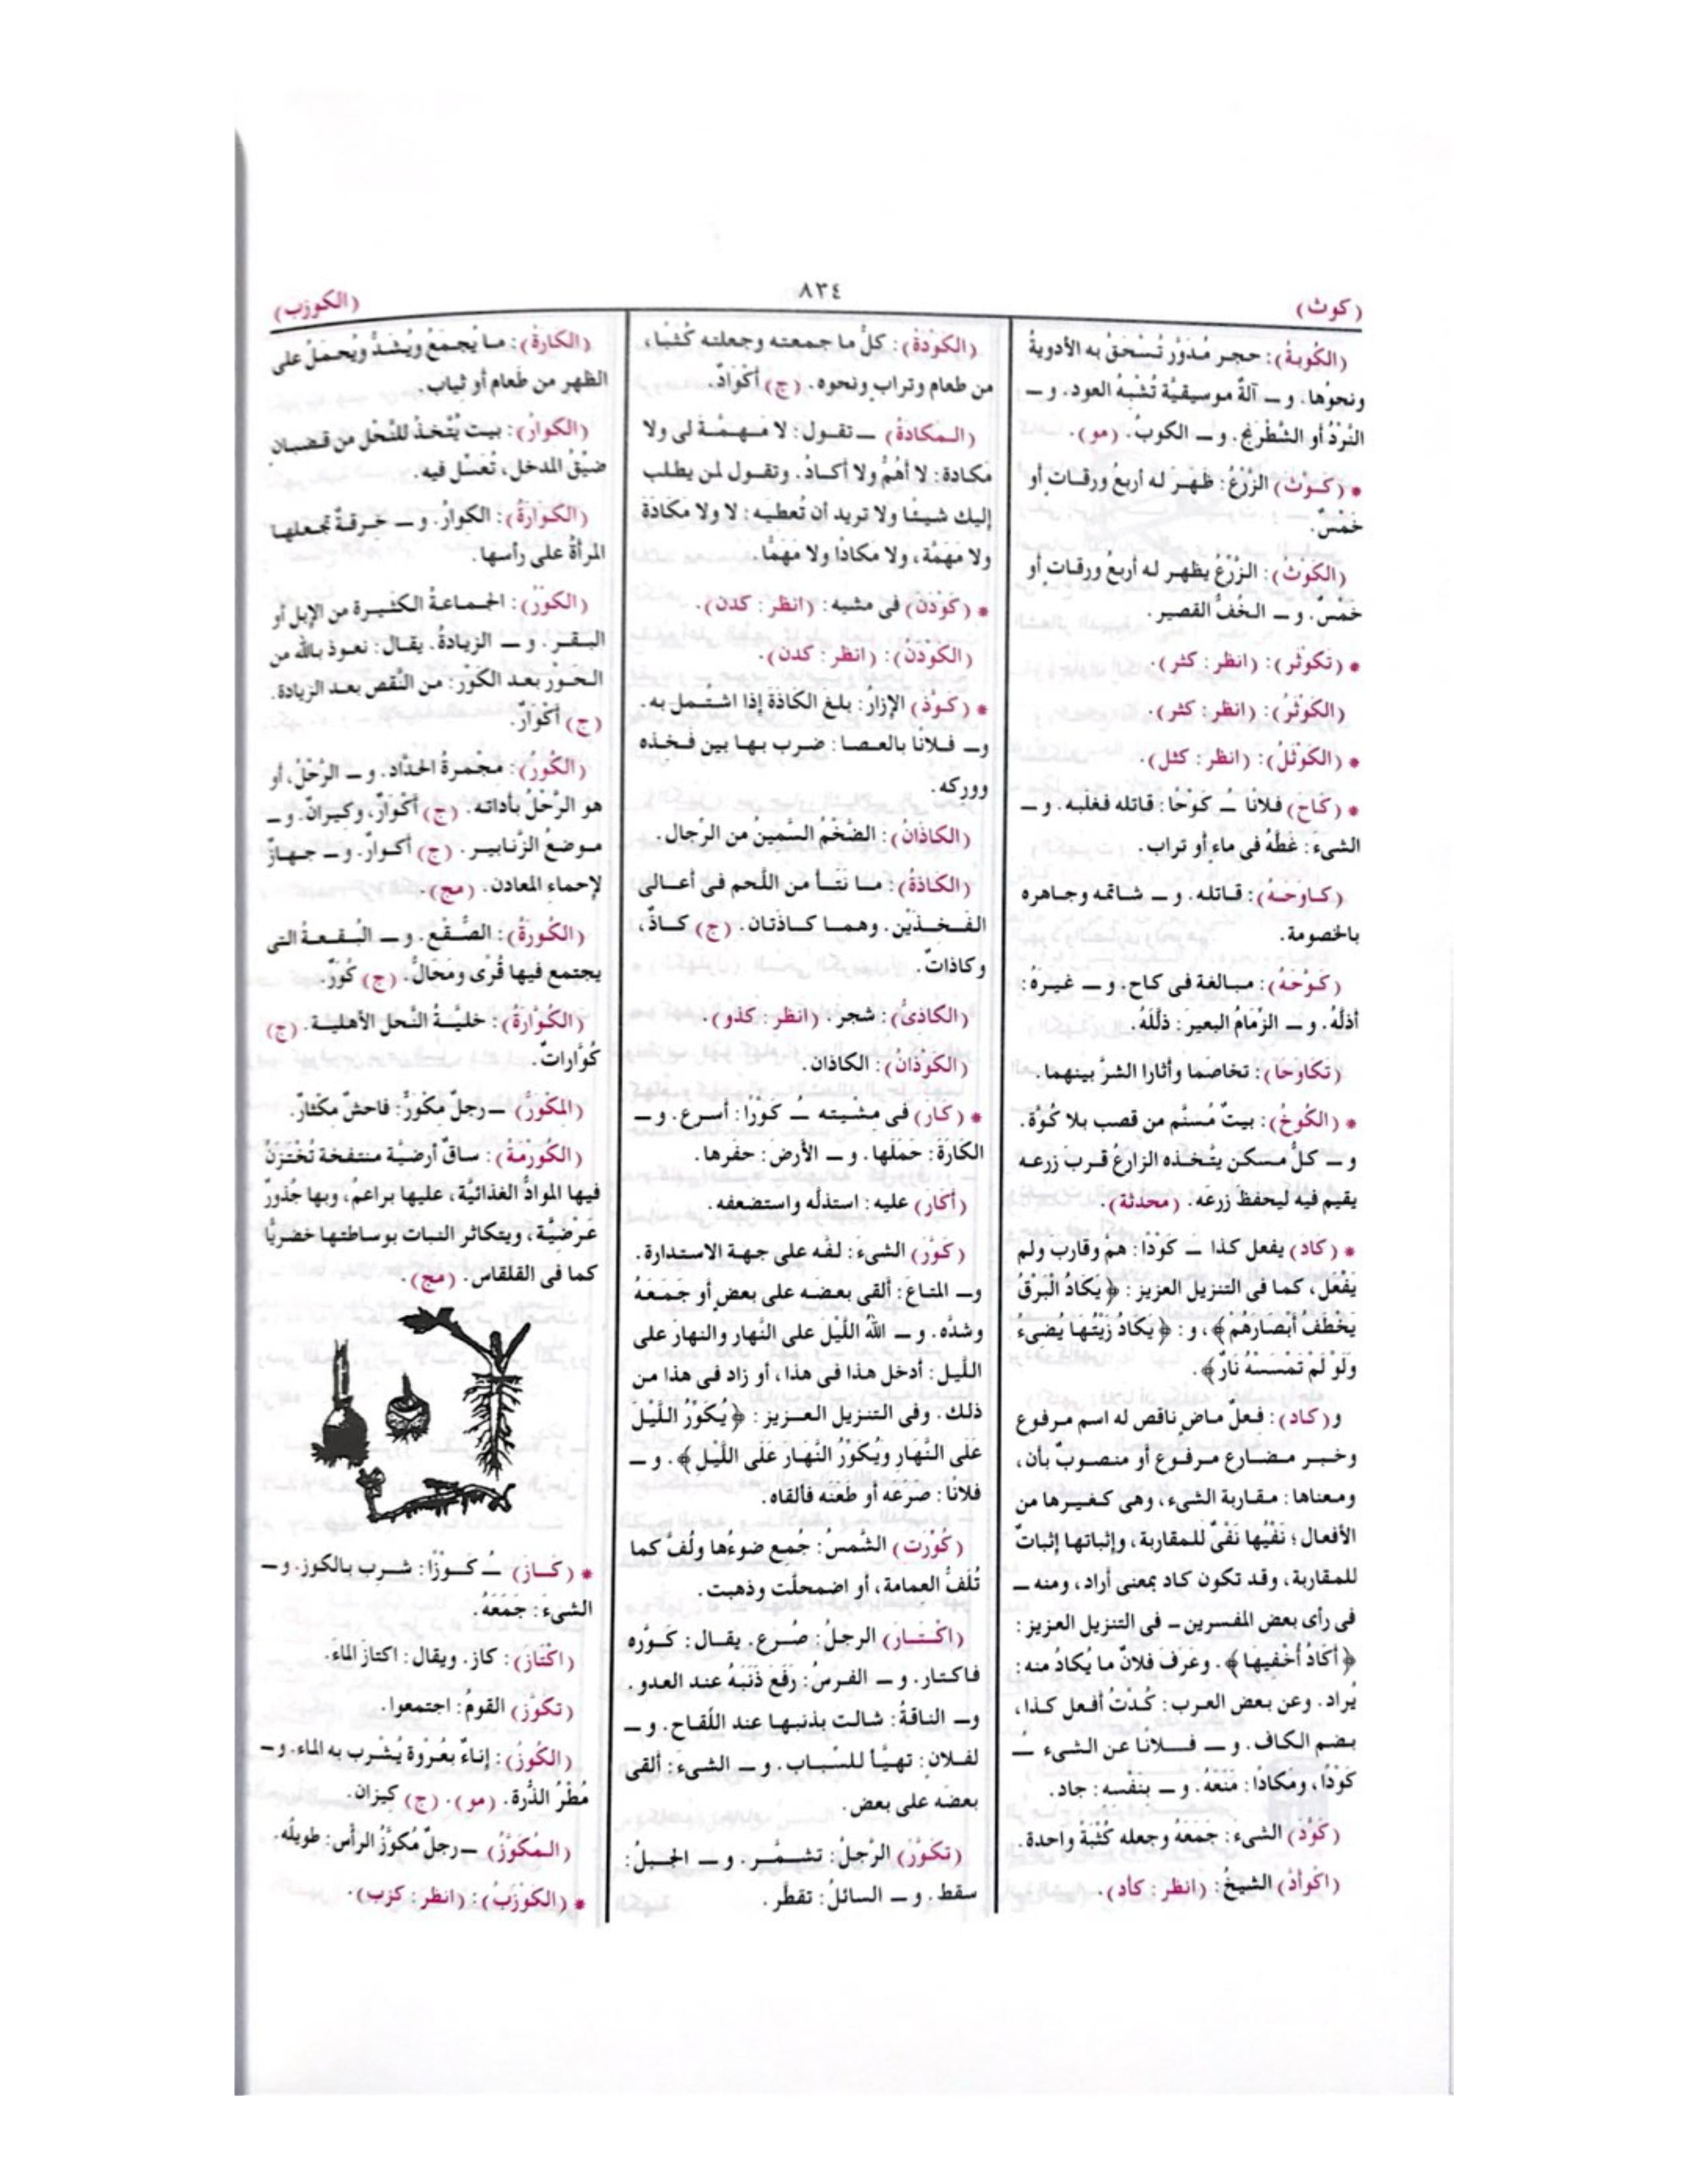 (كوث)
٨٣٤
(الكوزب)
(الكُوبةُ): حجر مُدَوَّر تُسْحَقُ به الأدويةُ
ونحوُها. و ــ آلةٌ موسيقيَّة تُشْبِهُ العود. و ــ
النَّرْدُ أو الشَّطْرَنج. و ــ الكوبُ. (مو).
* (كَـوَّثَ) الزَّرْعُ: ظَهَـرَ له أربعُ ورقـات أو
خَمْسٌ.
(الكَوْثُ): الزَّرْعُ يظهر له أربعُ ورقات أو
خَمْسٌ. و ــ الـخُفُّ القصير.
* (تَكَوْثَر): (انظر: كثر).
(الكَوْثَر): (انظر: كثر).
* (الكَوْثَلُ): (انظر: كثل).
* (كاح) فلانًا ــُ كَوْحًا: قاتله فغلبه. و ــ
الشىءَ: غَطَّهُ فى ماءٍ أو تراب.
(كـاوَحَـهُ): قـاتله. و ــ شـاتمه وجـاهره
بالخصومة.
(كَـوَّحَهُ): مـبـالغة فى كاح. و ــ غيـرَهُ:
أذلَّهُ. و ــ الزِّمَامُ البعيرَ: ذلَّلَهُ.
(تكاوحا): تخاصَمَا وأثارا الشرَّ بينهما.
* (الكُوخُ): بيتٌ مُسنَّم من قصب بلا كُوَّة.
و ــ كلُّ مسكن يتَّخذه الزارعُ قـرب زرعـه
يقيم فيه ليحفظ زرعَه. (محدثة).
* (كَاد) يفعل كذا ــ كَوْدًا: همَّ وقارب ولم
يَفْعَل، كما فى التنزيل العزيز: ﴿يَكَادُ الْبَرْقُ
يَخْطَفُ أَبْصَارَهُم﴾، و: ﴿يَكَادُ زَيْتُهَا يُضِىءُ
وَلَوْ لَمْ تَمْسَسْهُ نَارٌ﴾.
و(كـاد): فـعلٌ مـاض ناقص له اسم مـرفوع
وخـبـر مـضـارع مـرفـوع أو منصـوبٌ بأن،
ومـعناها: مـقـاربة الشىء، وهى كـغـيـرها من
الأفعال؛ نَفْيُها نَفْىٌ للمقاربة، وإثباتها إثباتٌ
للمقاربة، وقد تكون كاد بمعنى أراد، ومنه ــ
فى رأى بعض المفسرين ــ فى التنزيل العزيز:
﴿أَكَادُ أُخْفِيهَا﴾. وعَرَف فلانٌ ما يُكادُ منه:
يُراد. وعن بعض العرب: كُـدْتُ أفعل كـذا،
بـضـم الكاف. و ــ فـــلانًا عن الشىء ــُ
كَوْدًا، ومكادًا: مَنَعَهُ. و ــ بنَفْسه: جاد.
(كَوَّد) الشىءَ: جَمَعَهُ وجعله كُثْبَةً واحدة.
(اكْوأدَّ) الشيخُ: (انظر: كأد).
(الكَوْدَةُ): كلُّ ما جمعته وجعلته كُثَبًا،
من طعام وتراب ونحوه. (ج) أكْوَادٌ.
(الـمكادةُ) ــ تقـول: لا مَـهـمَّـة لى ولا
مَكادة: لا أهُمُّ ولا أكـادُ. وتقـول لمن يطلب
إليك شيـئًا ولا تريد أن تُعطيـه: لا ولا مَكادَة
ولا مَهَمَّة، ولا مَكادًا ولا مَهَمًّا.
* (كَوْدَن) فى مشيه: (انظر: كدن).
(الكَوْدَنُ): (انظر: كدن).
* (كَـوَّذَ) الإزارُ: بلغَ الكَاذَةَ إذا اشْتَـمل به.
و ــ فـلانًا بالعـصـا: ضـرب بهـا بين فَـخـذه
ووركه.
(الكاذَانُ): الضَّخْمُ السَّمينُ من الرِّجال.
(الكاذَةُ): مـا نَتَـأ من اللَّحم فى أعـالى
الفَـخـذَيْن. وهمـا كـاذَتان. (ج) كـاذٌ،
وكاذاتٌ.
(الكاذىُّ): شجر. (انظر: كذو).
(الكَوْذَانُ): الكاذان.
* (كارَ) فى مشْيته ــُ كَوْرًا: أسرع. و ــ
الكَارَةَ: حَمَلَها. و ــ الأرضَ: حفَرها.
(أكَارَ) عليه: استذلَّه واستضعفه.
(كَوَّرَ) الشىءَ: لفَّه على جهة الاستدارة.
و ــ المتاعَ: ألقى بعضَه على بعض أو جَمَعَهُ
وشدَّه. و ــ اللهُ اللَّيْلَ على النَّهار والنهارَ على
اللَّيل: أدخل هذا فى هذا، أو زاد فى هذا من
ذلك. وفى التنزيل العـزيز: ﴿يُكَوِّرُ اللَّيْلَ
عَلَى النَّهَارِ وَيُكَوِّرُ النَّهَارَ عَلَى اللَّيْلِ﴾. و ــ
فلانًا: صرعه أو طَعَنه فألقاه.
(كُوِّرَت) الشَّمسُ: جُمِع ضوءُها ولُفَّ كما
تُلَفُّ العمامة، أو اضمحلَّت وذهبت.
(اكْـتَـارَ) الرجلُ: صُـرع. يقـال: كَـوَّره
فـاكـتـار. و ــ الفـرسُ: رَفَعَ ذَنَبَهُ عند العدو.
و ــ الناقةُ: شالت بذنبهـا عند اللِّقاح. و ــ
لفـلان: تهيَّـأ للسِّبـاب. و ــ الشىءَ: ألقى
بعضَه على بعض.
(تكَوَّرَ) الرَّجلُ: تشـمَّـر. و ــ الجبلُ:
سقط. و ــ السائلُ: تقطَّر.
(الكَارَةُ): مـا يُجمَعُ ويُشَدُّ ويُحمَلُ على
الظهر من طَعام أو ثياب.
(الكوَارُ): بيت يُتَّخَذُ للنَّحْل من قـضبـان
ضيِّقُ المدخل، تُعَسِّل فيه.
(الكُوَارَةُ): الكوَارُ. و ــ خـرقـةٌ تجـعلهـا
المرأةُ على رأسها.
(الكَوْرُ): الجماعةُ الكثيـرة من الإبل أو
البـقـر. و ــ الزيادةُ. يقال: نعـوذ بـالله من
الـحَـوْر بعد الكَوْر: من النَّقص بعد الزيادة.
(ج) أكْوَارٌ.
(الكُورُ): مجْمرةُ الحدَّاد. و ــ الرَّحْلُ، أو
هو الرَّحْلُ بأداته. (ج) أكْوَارٌ، وكيرانٌ. و ــ
مـوضعُ الزَّنابيـر. (ج) أكـوارٌ. و ــ جـهـازٌ
لإحماء المعادن. (مج).
(الكُورَةُ): الصُّـقْع. و ــ البُـقـعـةُ التى
يجتمع فيها قُرًى ومَحَالُّ. (ج) كُوَرٌ.
(الكُوَّارَةُ): خليَّـةُ النَّحل الأهلية. (ج)
كُوَّاراتٌ.
(المكْورُّ) ــ رجلٌ مكْورٌّ: فاحشٌ مكْثارٌ.
(الكُورْمَةُ): ساقٌ أرضيَّة منتفخة تُخْتَزَنُ
فيها الموادُّ الغذائيَّة، عليها براعمُ، وبها جُذورٌ
عَـرْضيَّة، ويتكاثر النبات بوساطتها خضَريًّا
كما فى القلقاس. (مج).
* (كَـازَ) ــُ كَـوْزًا: شـرب بالكوز. و ــ
الشىءَ: جَمَعَهُ.
(اكْتَازَ): كاز. ويقال: اكتازَ الماءَ.
(تكَوَّزَ) القومُ: اجتمعوا.
(الكُوزُ): إناءٌ بعُرْوة يُشْرب به الماء. و ــ
مُطْرُ الذُّرة. (مو). (ج) كيزان.
(الـمُكَوَّزُ) ــ رجلٌ مُكَوَّزُ الرأس: طويلُه.
* (الكَوْزَبُ): (انظر: كزب).